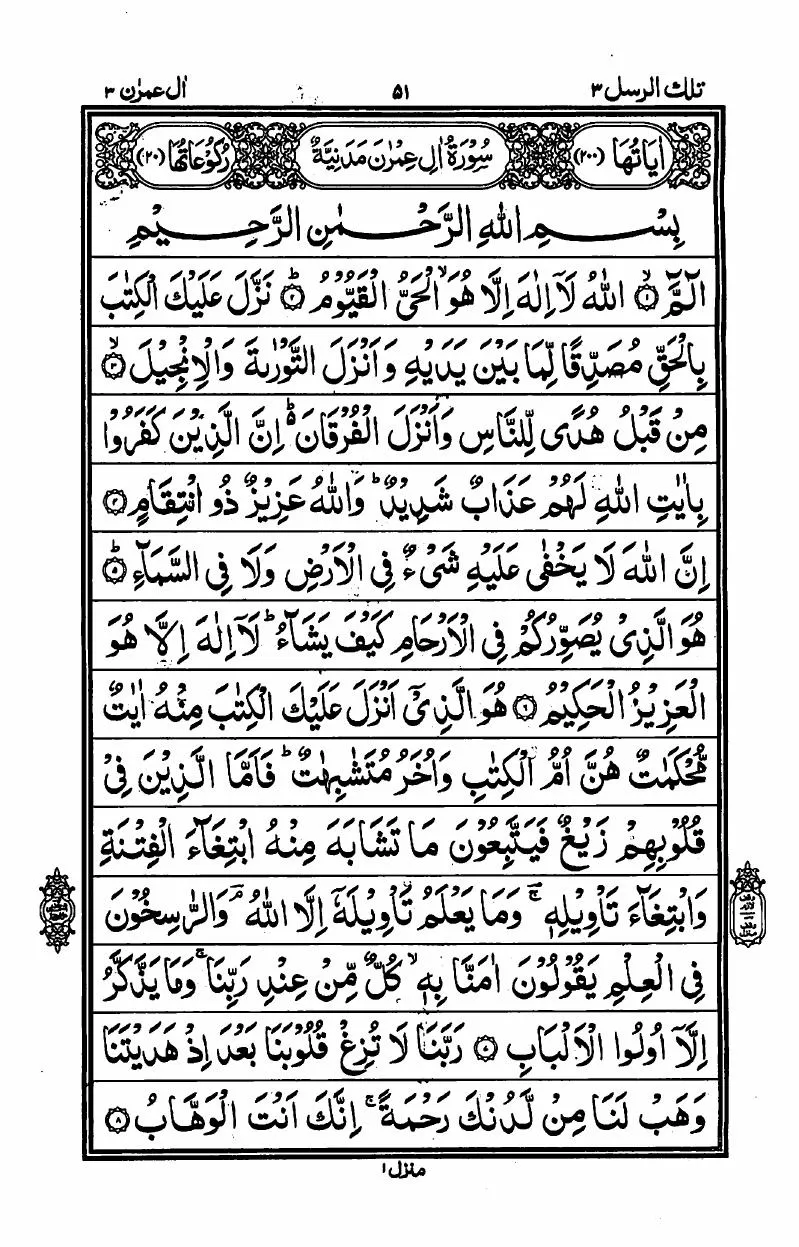 تلك الرسل ٣ ۵۱ اٰل عمرٰن ٣
اٰیَاتُهَا (٢٠٠) سُوْرَةُ اٰلِ عِمْرٰنَ مَدَنِیَّةٌ رُكُوْعَاتُهَا (٢٠)
بِسْمِ اللّٰهِ الرَّحْمٰنِ الرَّحِیْمِ
الٓمَّٓ ۙ﴿۱﴾ اللّٰهُ لَاۤ اِلٰهَ اِلَّا هُوَ ۙ الْحَیُّ الْقَیُّوْمُ ؕ﴿۲﴾ نَزَّلَ عَلَیْكَ الْكِتٰبَ
بِالْحَقِّ مُصَدِّقًا لِّمَا بَیْنَ یَدَیْهِ وَاَنْزَلَ التَّوْرٰىةَ وَالْاِنْجِیْلَ ۙ﴿۳﴾
مِنْ قَبْلُ هُدًی لِّلنَّاسِ وَاَنْزَلَ الْفُرْقَانَ ؕ۬ اِنَّ الَّذِیْنَ كَفَرُوْا
بِاٰیٰتِ اللّٰهِ لَهُمْ عَذَابٌ شَدِیْدٌ ؕ وَاللّٰهُ عَزِیْزٌ ذُو انْتِقَامٍ ﴿۴﴾
اِنَّ اللّٰهَ لَا یَخْفٰی عَلَیْهِ شَیْءٌ فِی الْاَرْضِ وَلَا فِی السَّمَآءِ ؕ﴿۵﴾
هُوَ الَّذِیْ یُصَوِّرُكُمْ فِی الْاَرْحَامِ كَیْفَ یَشَآءُ ؕ لَاۤ اِلٰهَ اِلَّا هُوَ
الْعَزِیْزُ الْحَكِیْمُ ﴿۶﴾ هُوَ الَّذِیْۤ اَنْزَلَ عَلَیْكَ الْكِتٰبَ مِنْهُ اٰیٰتٌ
مُّحْكَمٰتٌ هُنَّ اُمُّ الْكِتٰبِ وَاُخَرُ مُتَشٰبِهٰتٌ ؕ فَاَمَّا الَّذِیْنَ فِیْ
قُلُوْبِهِمْ زَیْغٌ فَیَتَّبِعُوْنَ مَا تَشَابَهَ مِنْهُ ابْتِغَآءَ الْفِتْنَةِ
وَابْتِغَآءَ تَاْوِیْلِهٖ ۚ وَمَا یَعْلَمُ تَاْوِیْلَهٗۤ اِلَّا اللّٰهُ ۘ وَالرّٰسِخُوْنَ
فِی الْعِلْمِ یَقُوْلُوْنَ اٰمَنَّا بِهٖ ۙ كُلٌّ مِّنْ عِنْدِ رَبِّنَا ۚ وَمَا یَذَّكَّرُ
اِلَّاۤ اُولُوا الْاَلْبَابِ ﴿۷﴾ رَبَّنَا لَا تُزِغْ قُلُوْبَنَا بَعْدَ اِذْ هَدَیْتَنَا
وَهَبْ لَنَا مِنْ لَّدُنْكَ رَحْمَةً ۚ اِنَّكَ اَنْتَ الْوَهَّابُ ﴿۸﴾
منزل ۱